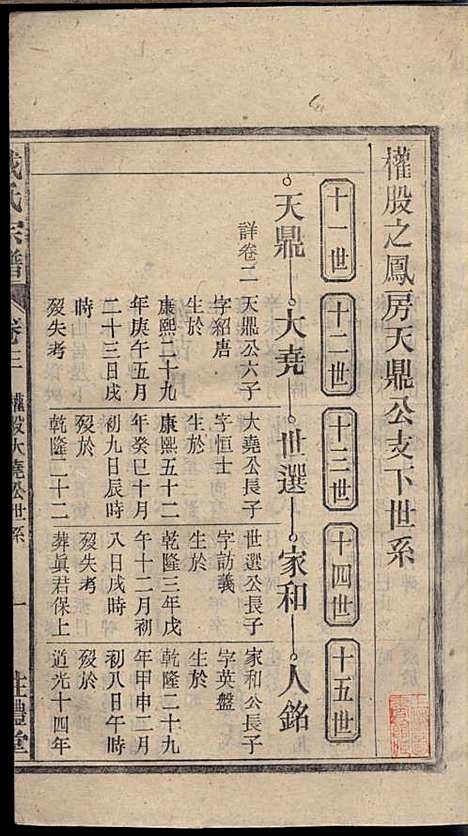 權股之鳳房天鼎公支下世系
十一世
十二世
十三世
十四世
十五世
天鼎
大堯
世選
家和
人銘
詳卷二
天鼎公六子
字紹唐
生於
康熙二十九
年庚午五月
二十三日戌
時
歿失考
大堯公長子
字恒士
生於
康熙五十二
年癸巳十月
初九日辰時
歿於
乾隆二十二
世選公長子
字訪義
生於
乾隆三年戊
午十二月初
八日戌時
歿失考
葬眞君保上
家和公長子
字英盤
生於
乾隆二十九
年甲申二月
初八日午時
歿於
道光十四年
氏宗譜
卷三
權股大堯公世系
一
禮堂